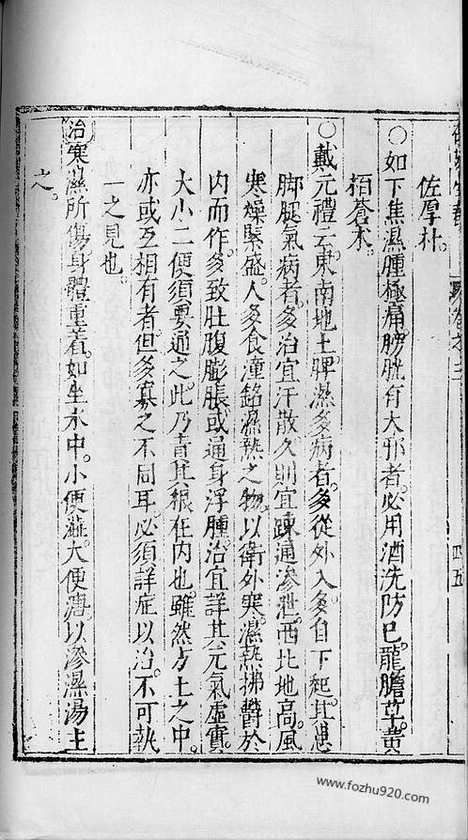 佐厚朴。
○如下焦濕腫極痛。膀胱有大邪者。必用酒洗防巳。龍膽草。黄
栢。蒼术。
○戴元禮云。東南地土𤰞濕。多病者。多從外入。多自下起。其患
脚腿氣病者。多治宜汗散。久則宜踈通滲泄。西北地高。風
寒燥緊盛。人多食潼銘濕熱之物。以衛外寒。濕熱拂欝於
内而作。多致肚腹膨脹。或通身浮腫。治宜詳其元氣虛實。
大小二便須要通之。此乃責其根在内也。雖然方土之中。
亦或互相有者。但多寡之不同耳。必須詳症以治。不可執
一之見也。
治寒濕所傷。身體重着。如坐水中。小便澁。大便溏。以滲濕湯主
之。
四五
www.fozhu920.com